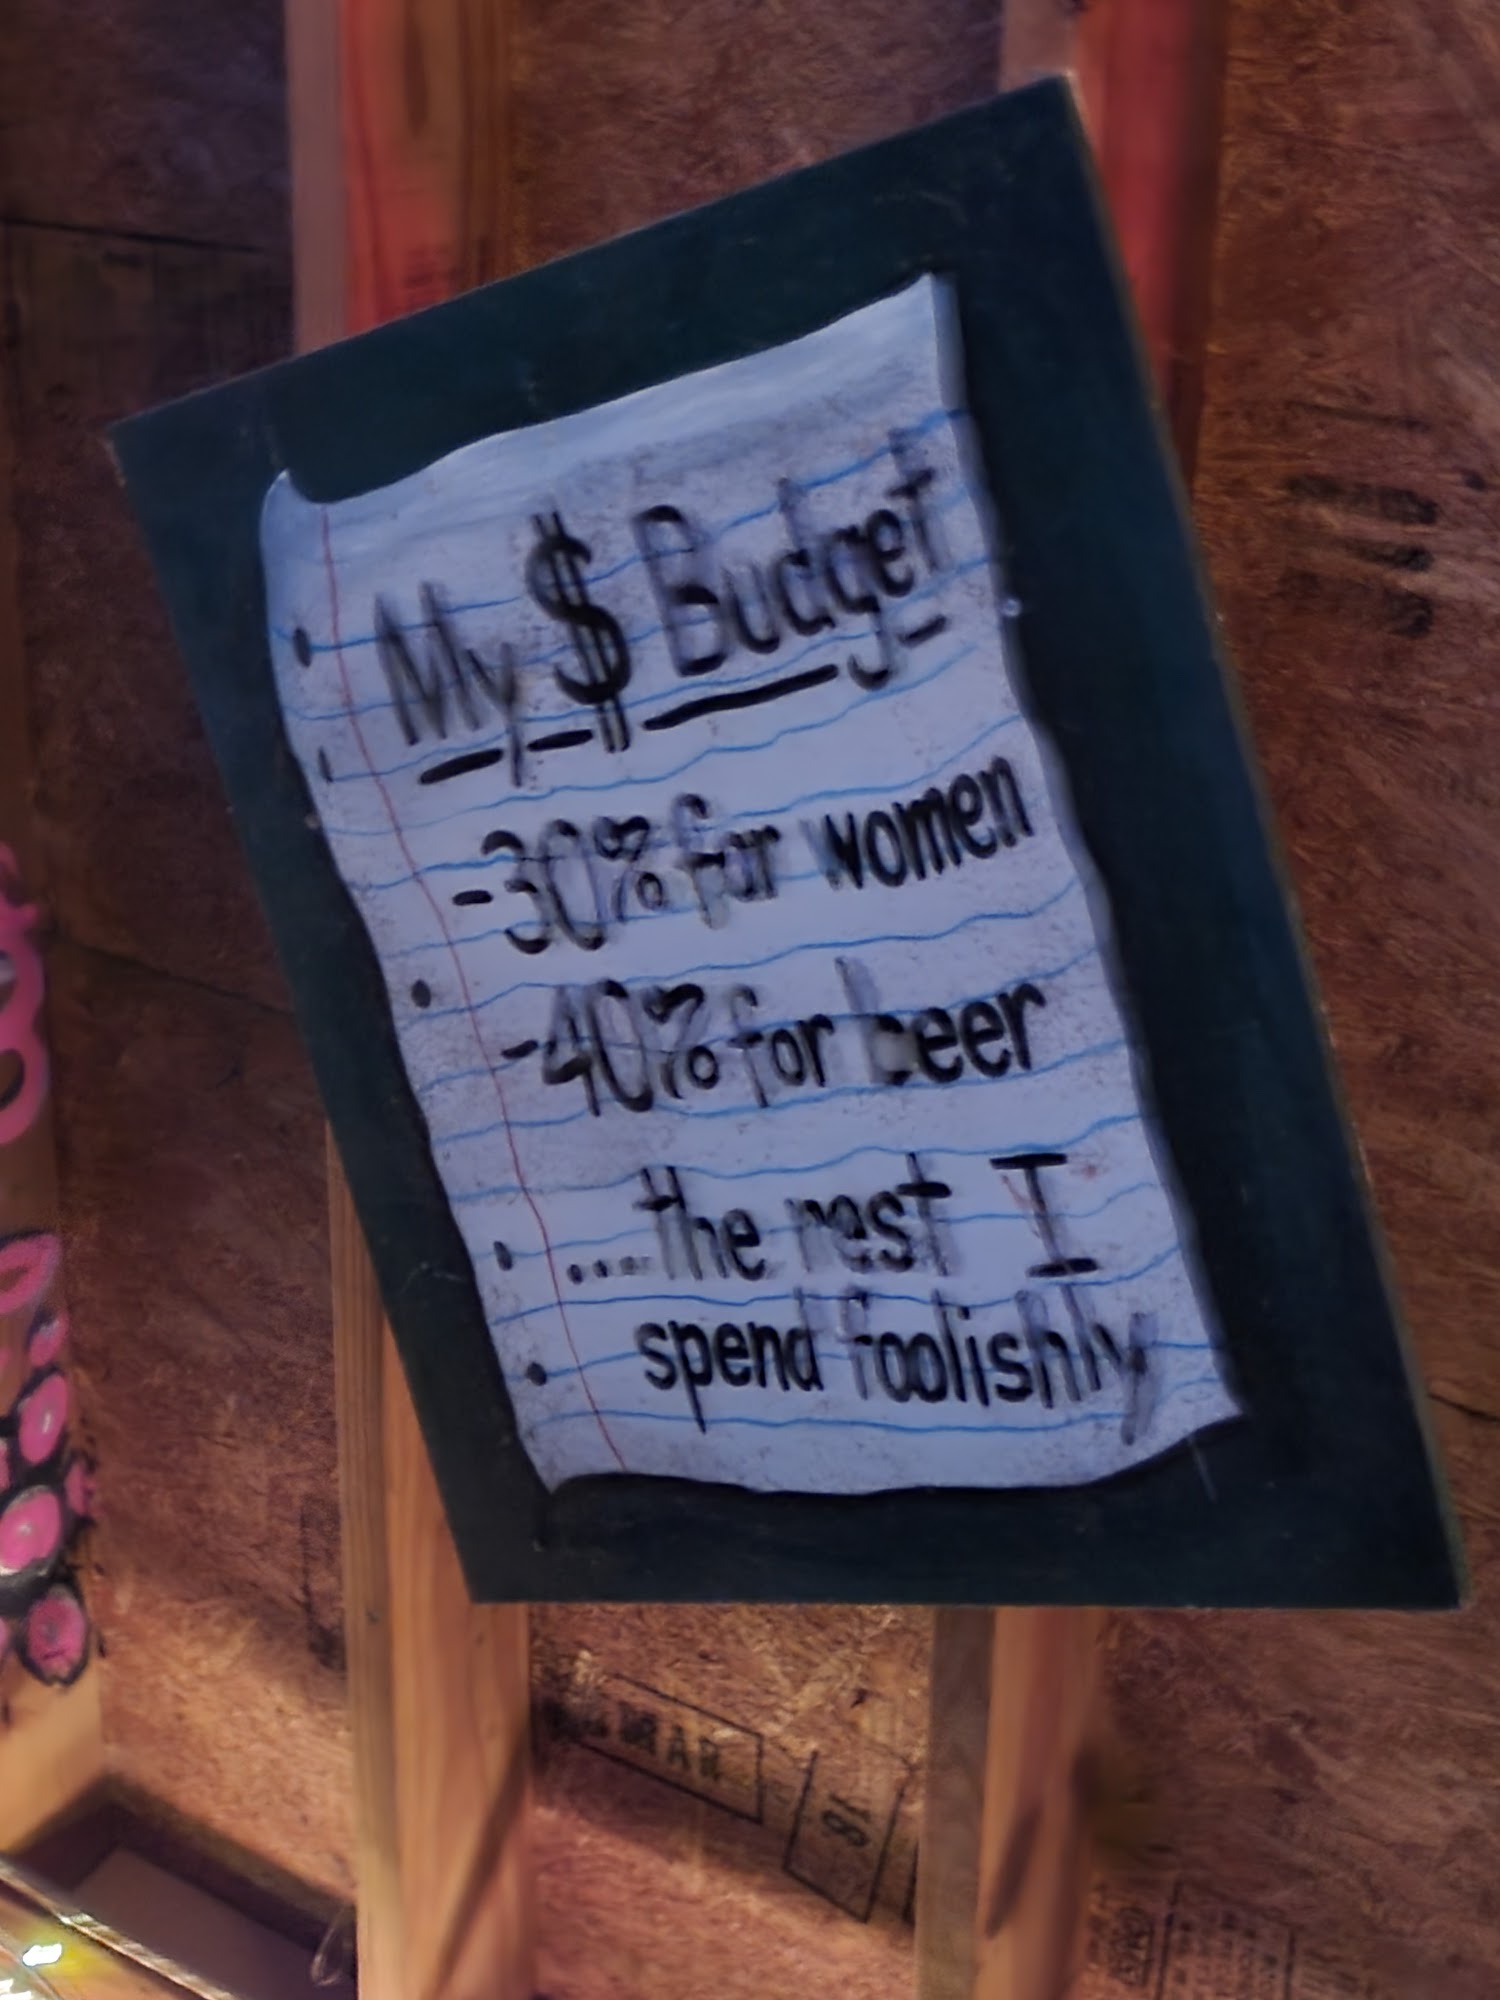 My $ Budget
-30% for women
-40% for beer
....the rest I
spend foolishly
16